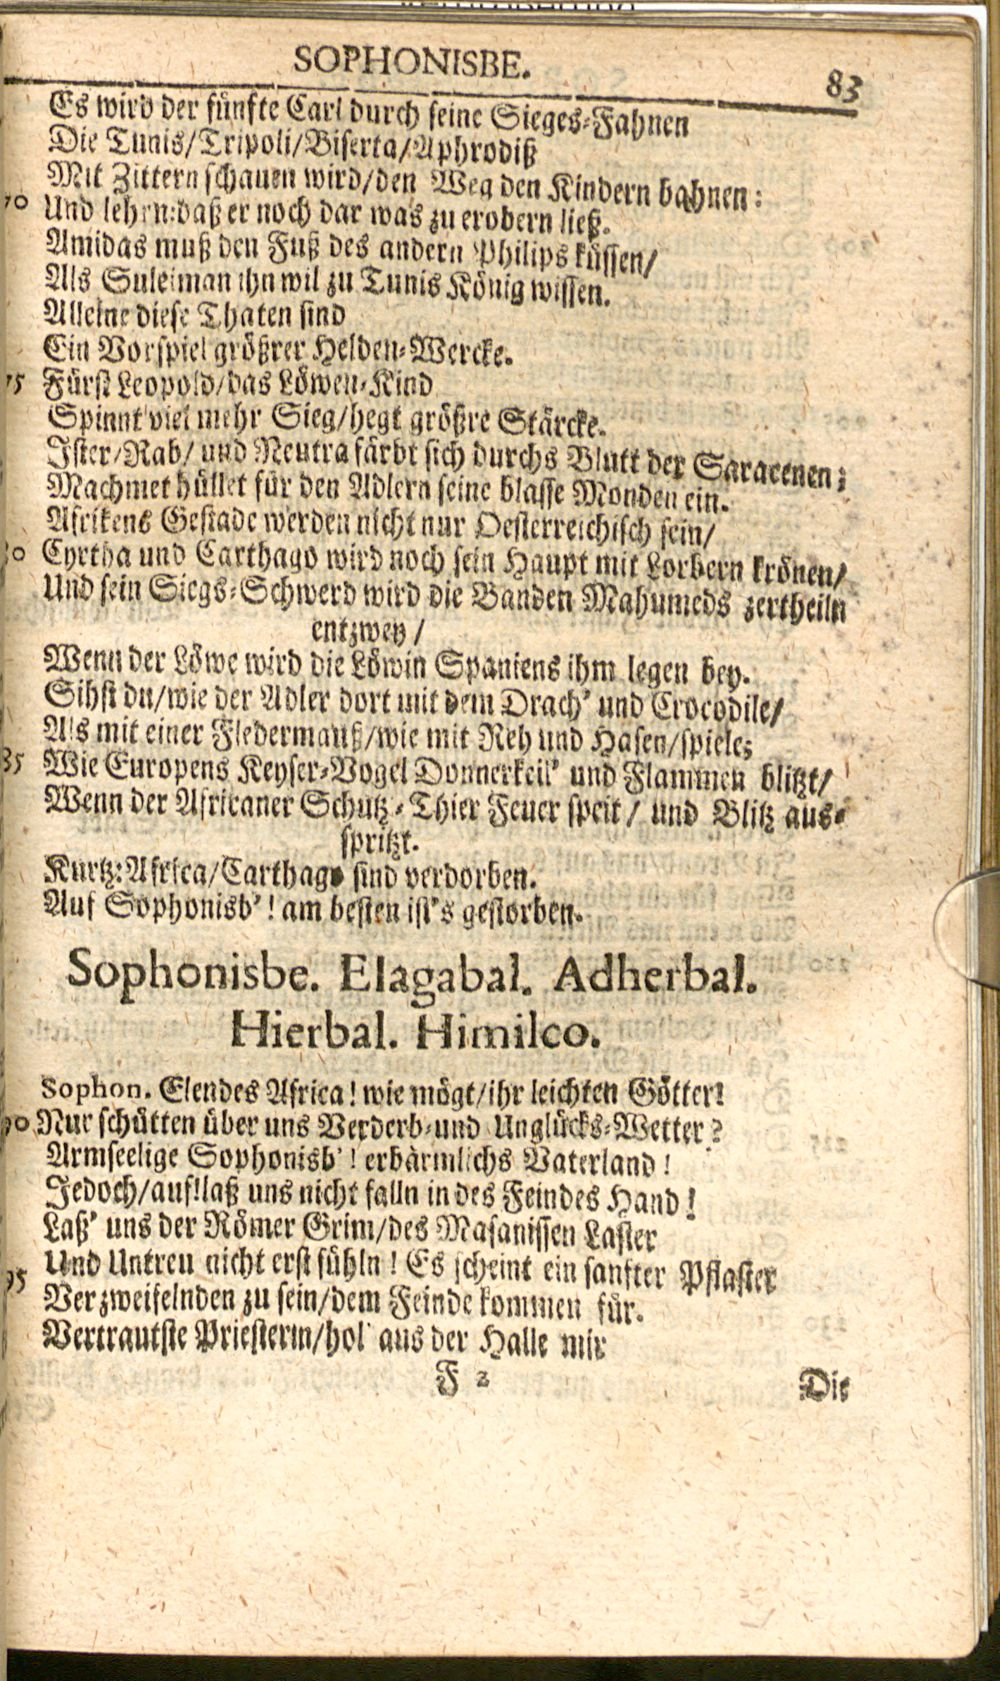 SOPHONISBE. 83
Es wird der fünfte Carl durch seine Sieges-Fahnen
Die Tunis/Tripoli/Biserta/Aphrodiß
Mit Zittern schauen wird/den Weg den Kindern bahnen:
70 Und lehrn: daß er noch dar was zu erobern ließ.
Amidas muß den Fuß des andern Philips küssen/
Als Suleiman ihn wil zu Tunis König wissen.
Alleine diese Thaten sind
Ein Vorspiel größrer Helden-Wercke.
75 Fürst Leopold/das Löwen-Kind
Spinnt viel mehr Sieg/hegt größre Stärcke.
Ister/Rab/ und Neutra färbt sich durchs Blutt der Saracenen;
Machmet hüllet für den Adlern seine blasse Monden ein.
Afrikens Gestade werden nicht nur Oesterreichisch sein/
80 Cyrtha und Carthago wird noch sein Haupt mit Lorbern krönen/
Und sein Siegs-Schwerd wird die Banden Mahumeds zertheiln
entzwey/
Wenn der Löwe wird die Löwin Spaniens ihm legen bey.
Sihst du/wie der Adler dort mit dem Drach' und Crocodile/
Als mit einer Fledermauß/wie mit Reh und Hasen/spiele;
85 Wie Europens Keyser-Vogel Donnerkeil' und Flammen blitzt/
Wenn der Africaner Schutz-Thier Feuer speit/ und Blitz aus-
spritzt.
Kurtz: Africa/Carthago sind verdorben.
Auf Sophonisb'! am besten ist's gestorben.
Sophonisbe. Elagabal. Adherbal.
Hierbal. Himilco.
Sophon. Elendes Africa! wie mögt/ihr leichten Götter!
90 Nur schütten über uns Verderb-und Unglücks-Wetter?
Armseelige Sophonisb'! erbärmlichs Vaterland!
Jedoch/auf!laß uns nicht falln in des Feindes Hand!
Laß' uns der Römer Grim/des Masanissen Laster
Und Untreu nicht erst fühln! Es scheint ein sanfter Pflaster
95 Verzweifelnden zu sein/dem Feinde kommen für.
Vertrautste Priesterin/hol' aus der Halle mir
F 2 Die